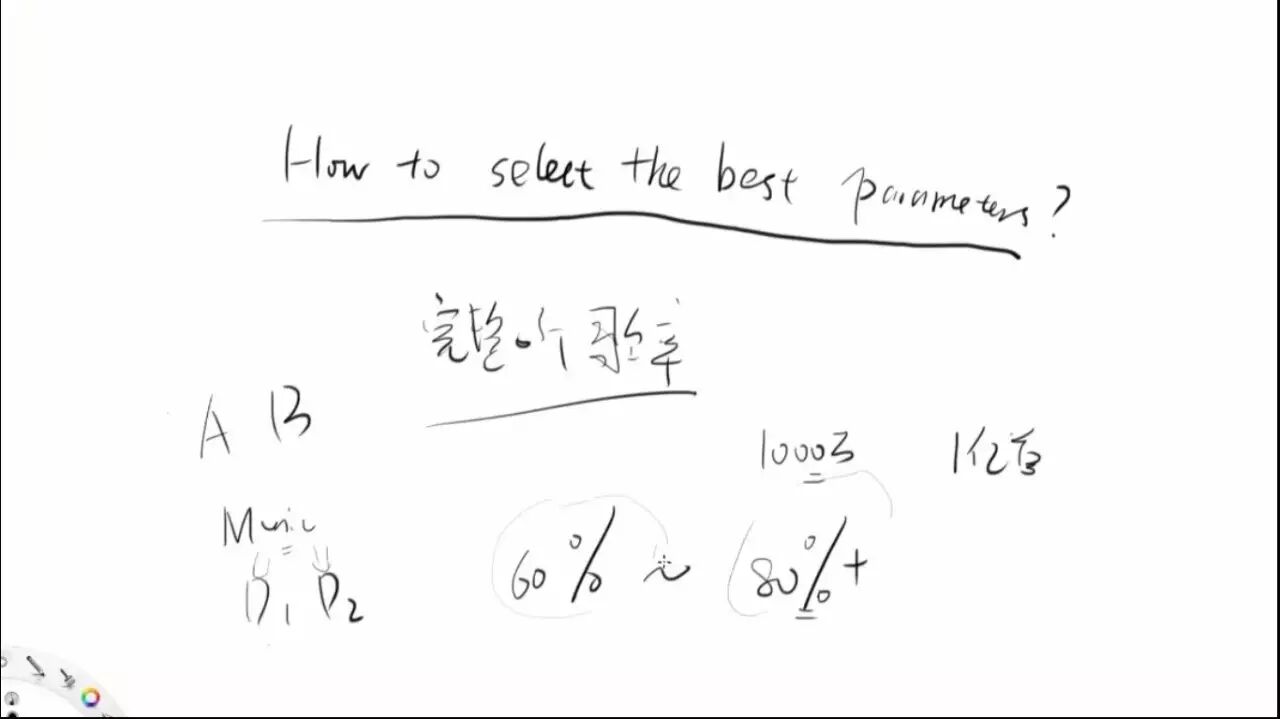 How to select the best parameters?
完整个歌率
A B
1000万 1亿首
Music
60% ~ 80%+
D1 D2